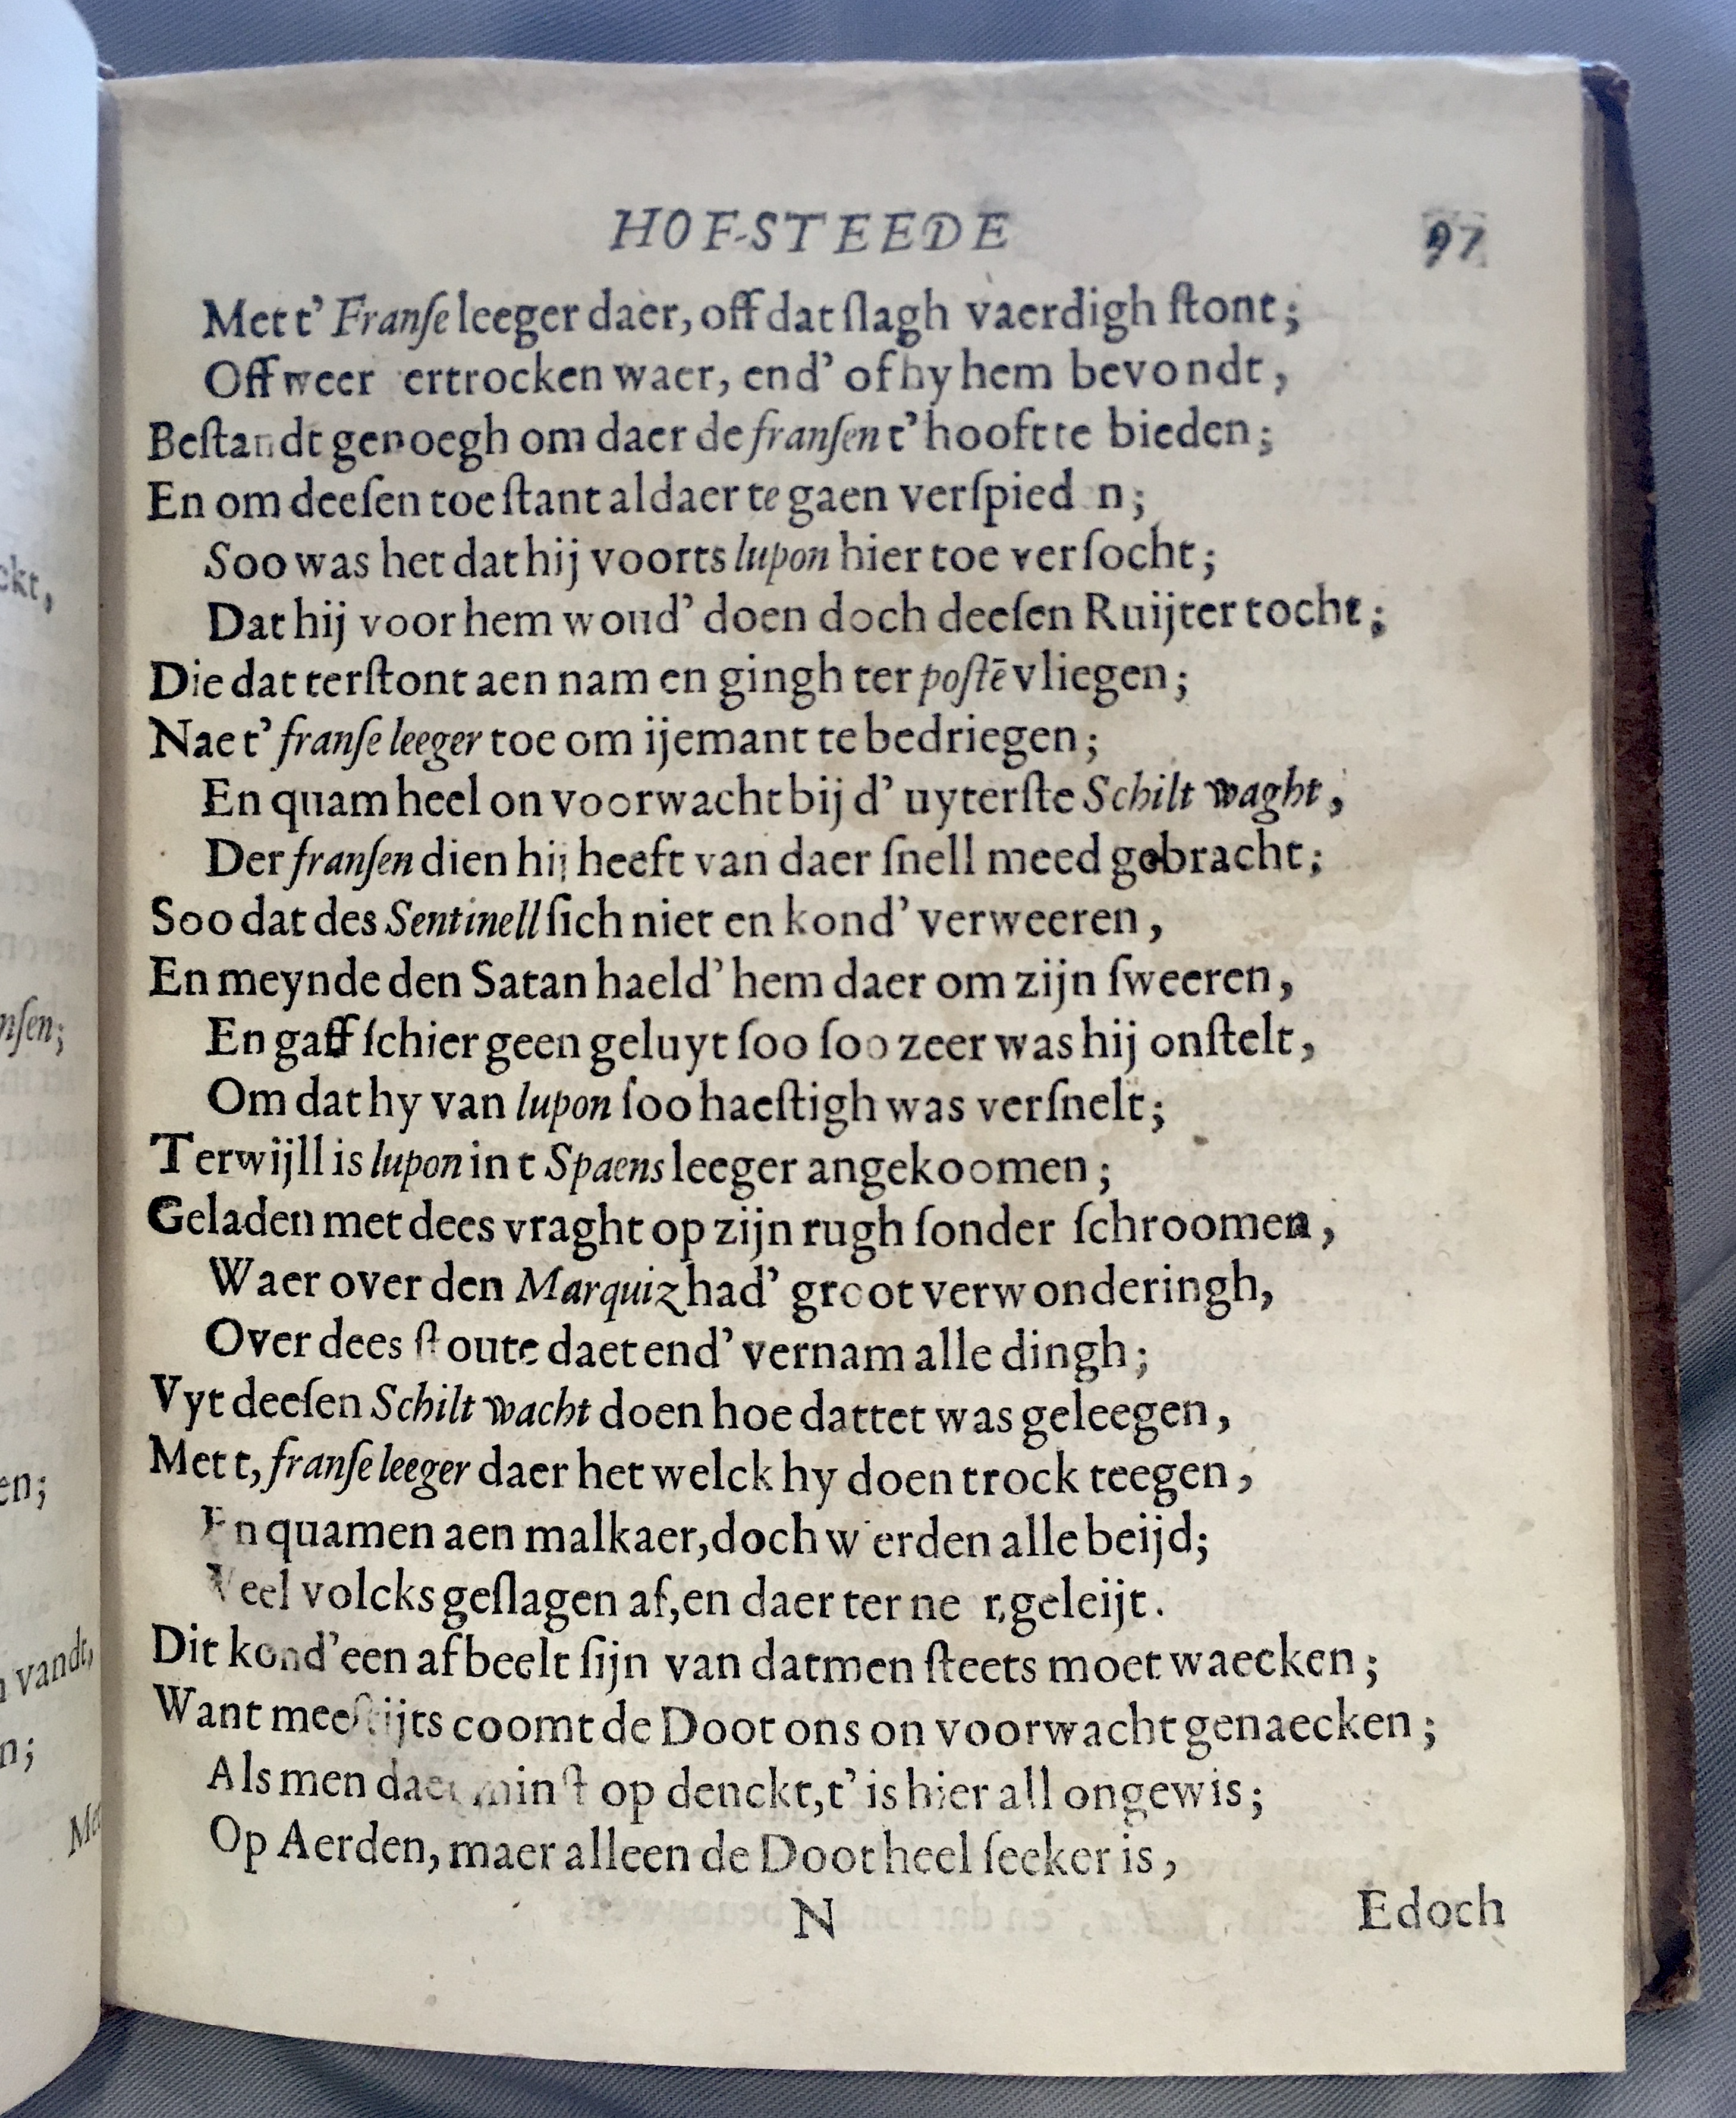 HOF-STEEDE 97
Met t' Franſe leeger daer, off dat ſlagh vaerdigh ſtont;
Off weer ertrocken waer, end' of hy hem bevondt,
Beſtandt genoegh om daer de franſen t' hooft te bieden;
En om deeſen toeſtant aldaer te gaen verſpied n;
Soo was het dat hij voorts lupon hier toe verſocht;
Dat hij voor hem woud' doen doch deeſen Ruijter tocht;
Die dat terſtont aen nam en gingh ter poſtē vliegen;
Nae t' franſe leeger toe om ijemant te bedriegen;
En quam heel on voorwacht bij d' uyterſte Schilt waght,
Der franſen dien hij heeft van daer ſnell meed gebracht;
Soo dat des Sentinell ſich niet en kond' verweeren,
En meynde den Satan haeld' hem daer om zijn ſweeren,
En gaff ſchier geen geluyt ſoo ſoo zeer was hij onſtelt,
Om dat hy van lupon ſoo haeſtigh was verſnelt;
Terwijll is lupon in t Spaens leeger angekoomen;
Geladen met dees vraght op zijn rugh ſonder ſchroomen,
Waer over den Marquiz had' groot verwonderingh,
Over dees ſtoute daet end' vernam alle dingh;
Vyt deeſen Schilt wacht doen hoe dattet was geleegen,
Met t, franſe leeger daer het welck hy doen trock teegen,
En quamen aen malkaer, doch w erden alle beijd;
Veel volcks geſlagen af, en daer ter ne r, geleijt.
Dit kond' een afbeelt ſijn van datmen ſteets moet waecken;
Want meeſtijts coomt de Doot ons on voorwacht genaecken;
Als men daer minſt op denckt, t' is hier all ongewis;
Op Aerden, maer alleen de Doot heel ſeeker is,
N Edoch
ckt,
nſen;
en;
n vandt,
n;
Met